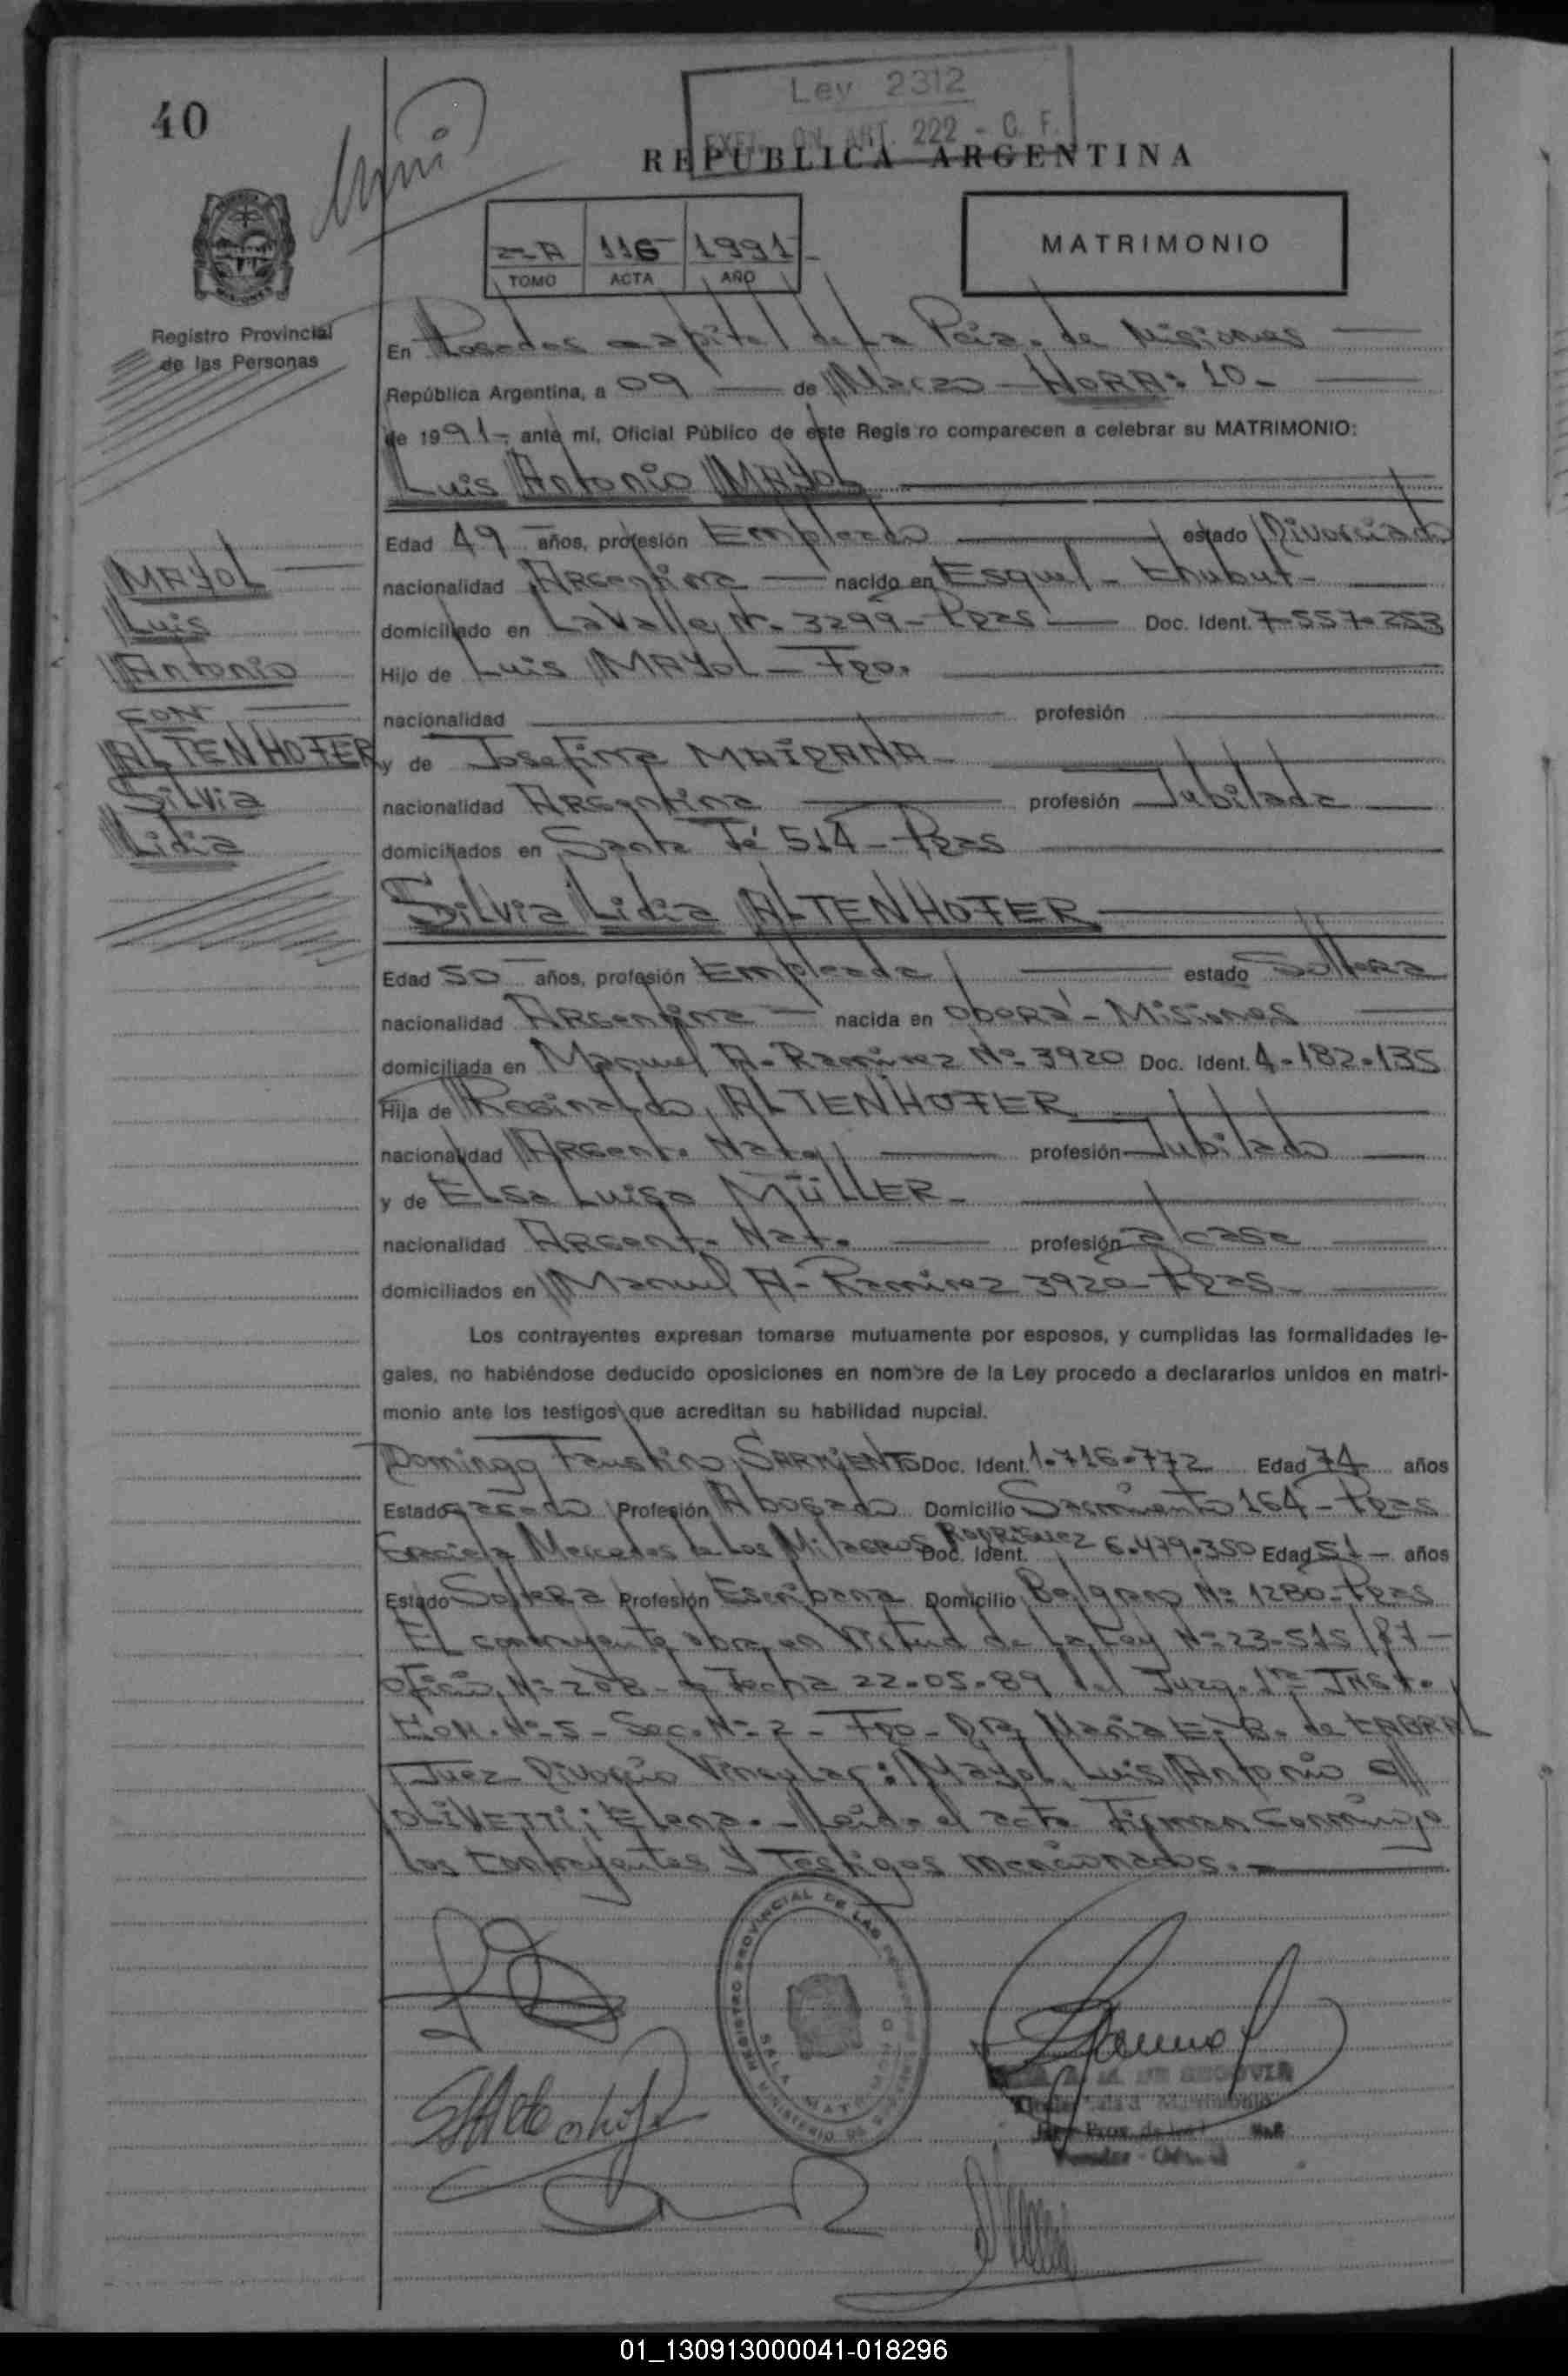 40
Ley 2312
ART. 222 - C. F.
REPUBLICA ARGENTINA
116 1991
TOMO ACTA AÑO
MATRIMONIO
Registro Provincial
de las Personas
En Posadas capital de la Pcia. de Misiones
República Argentina, a 09 de Marzo - HORA: 10.-
de 1991-, ante mí, Oficial Público de este Regis ro comparecen a celebrar su MATRIMONIO:
Luis Antonio MAYOL
Edad 49 años, profesión Empleado estado Divorciado
nacionalidad Argentina nacido en Esquel - Chubut-
domiciliado en Lavalle N°. 3299 - Pdas Doc. Ident. 7.557.253
Hijo de Luis MAYOL - Fdo.
nacionalidad profesión
y de Josefina
nacionalidad Argentina profesión Jubilada
domiciliados en Santa Fé 514 - Pdas
MAYOL
Luis
Antonio
CON
ALTENHOFER
Silvia
Lidia
Silvia Lidia ALTENHOFER
Edad 50 años, profesión Empleada estado Soltera
nacionalidad Argentina nacida en Oberá - Misiones
domiciliada en Manuel A. Ramirez N° 3920 Doc. Ident. 4.182.135
Hija de Reginaldo ALTENHOFER
nacionalidad Argent. Nat. profesión Jubilado
y de Elsa Luisa MÜLLER-
nacionalidad Argent. Nat. profesión a/casa
domiciliados en Manuel A. Ramirez 3920 - Pdas.
Los contrayentes expresan tomarse mutuamente por esposos, y cumplidas las formalidades le-
gales, no habiéndose deducido oposiciones en nombre de la Ley procedo a declararlos unidos en matri-
monio ante los testigos que acreditan su habilidad nupcial.
Domingo Faustino SARMIENTO Doc. Ident. 1.716.772 Edad 74 años
Estado casado Profesión Abogado Domicilio Sarmiento 164 - Pdas
Graciela Mercedes de los Milagros Rodriguez Doc. Ident. 6.479.350 Edad 51 - años
Estado Soltera Profesión Escribana Domicilio Belgrano N° 1280 - Pdas
El contrayente obra en virtud de la Ley N° 23.515/87 -
Oficio N° 208 - de Fecha 22.05.89 del Juzg. 1ra Inst.
N° 5 - Sec. N° 2 - Fdo - Dra. Maria E. B. de CABRAL
Juez Divorcio Vincular: Mayol, Luis Antonio c/
OLIVETTI; Elena. - Leida el acta Firman conmigo
los contrayentes y Testigos mencionados.-
REGISTRO PROVINCIAL DE LAS PERSONAS
SALA MATRIMONIO
MINISTERIO DE
DE SEGOVIA
01_130913000041-018296